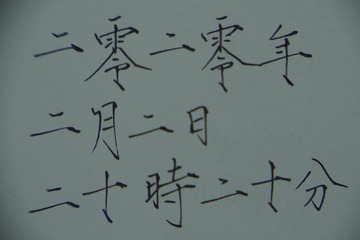 二零二零年
二月二日
二十時二十分